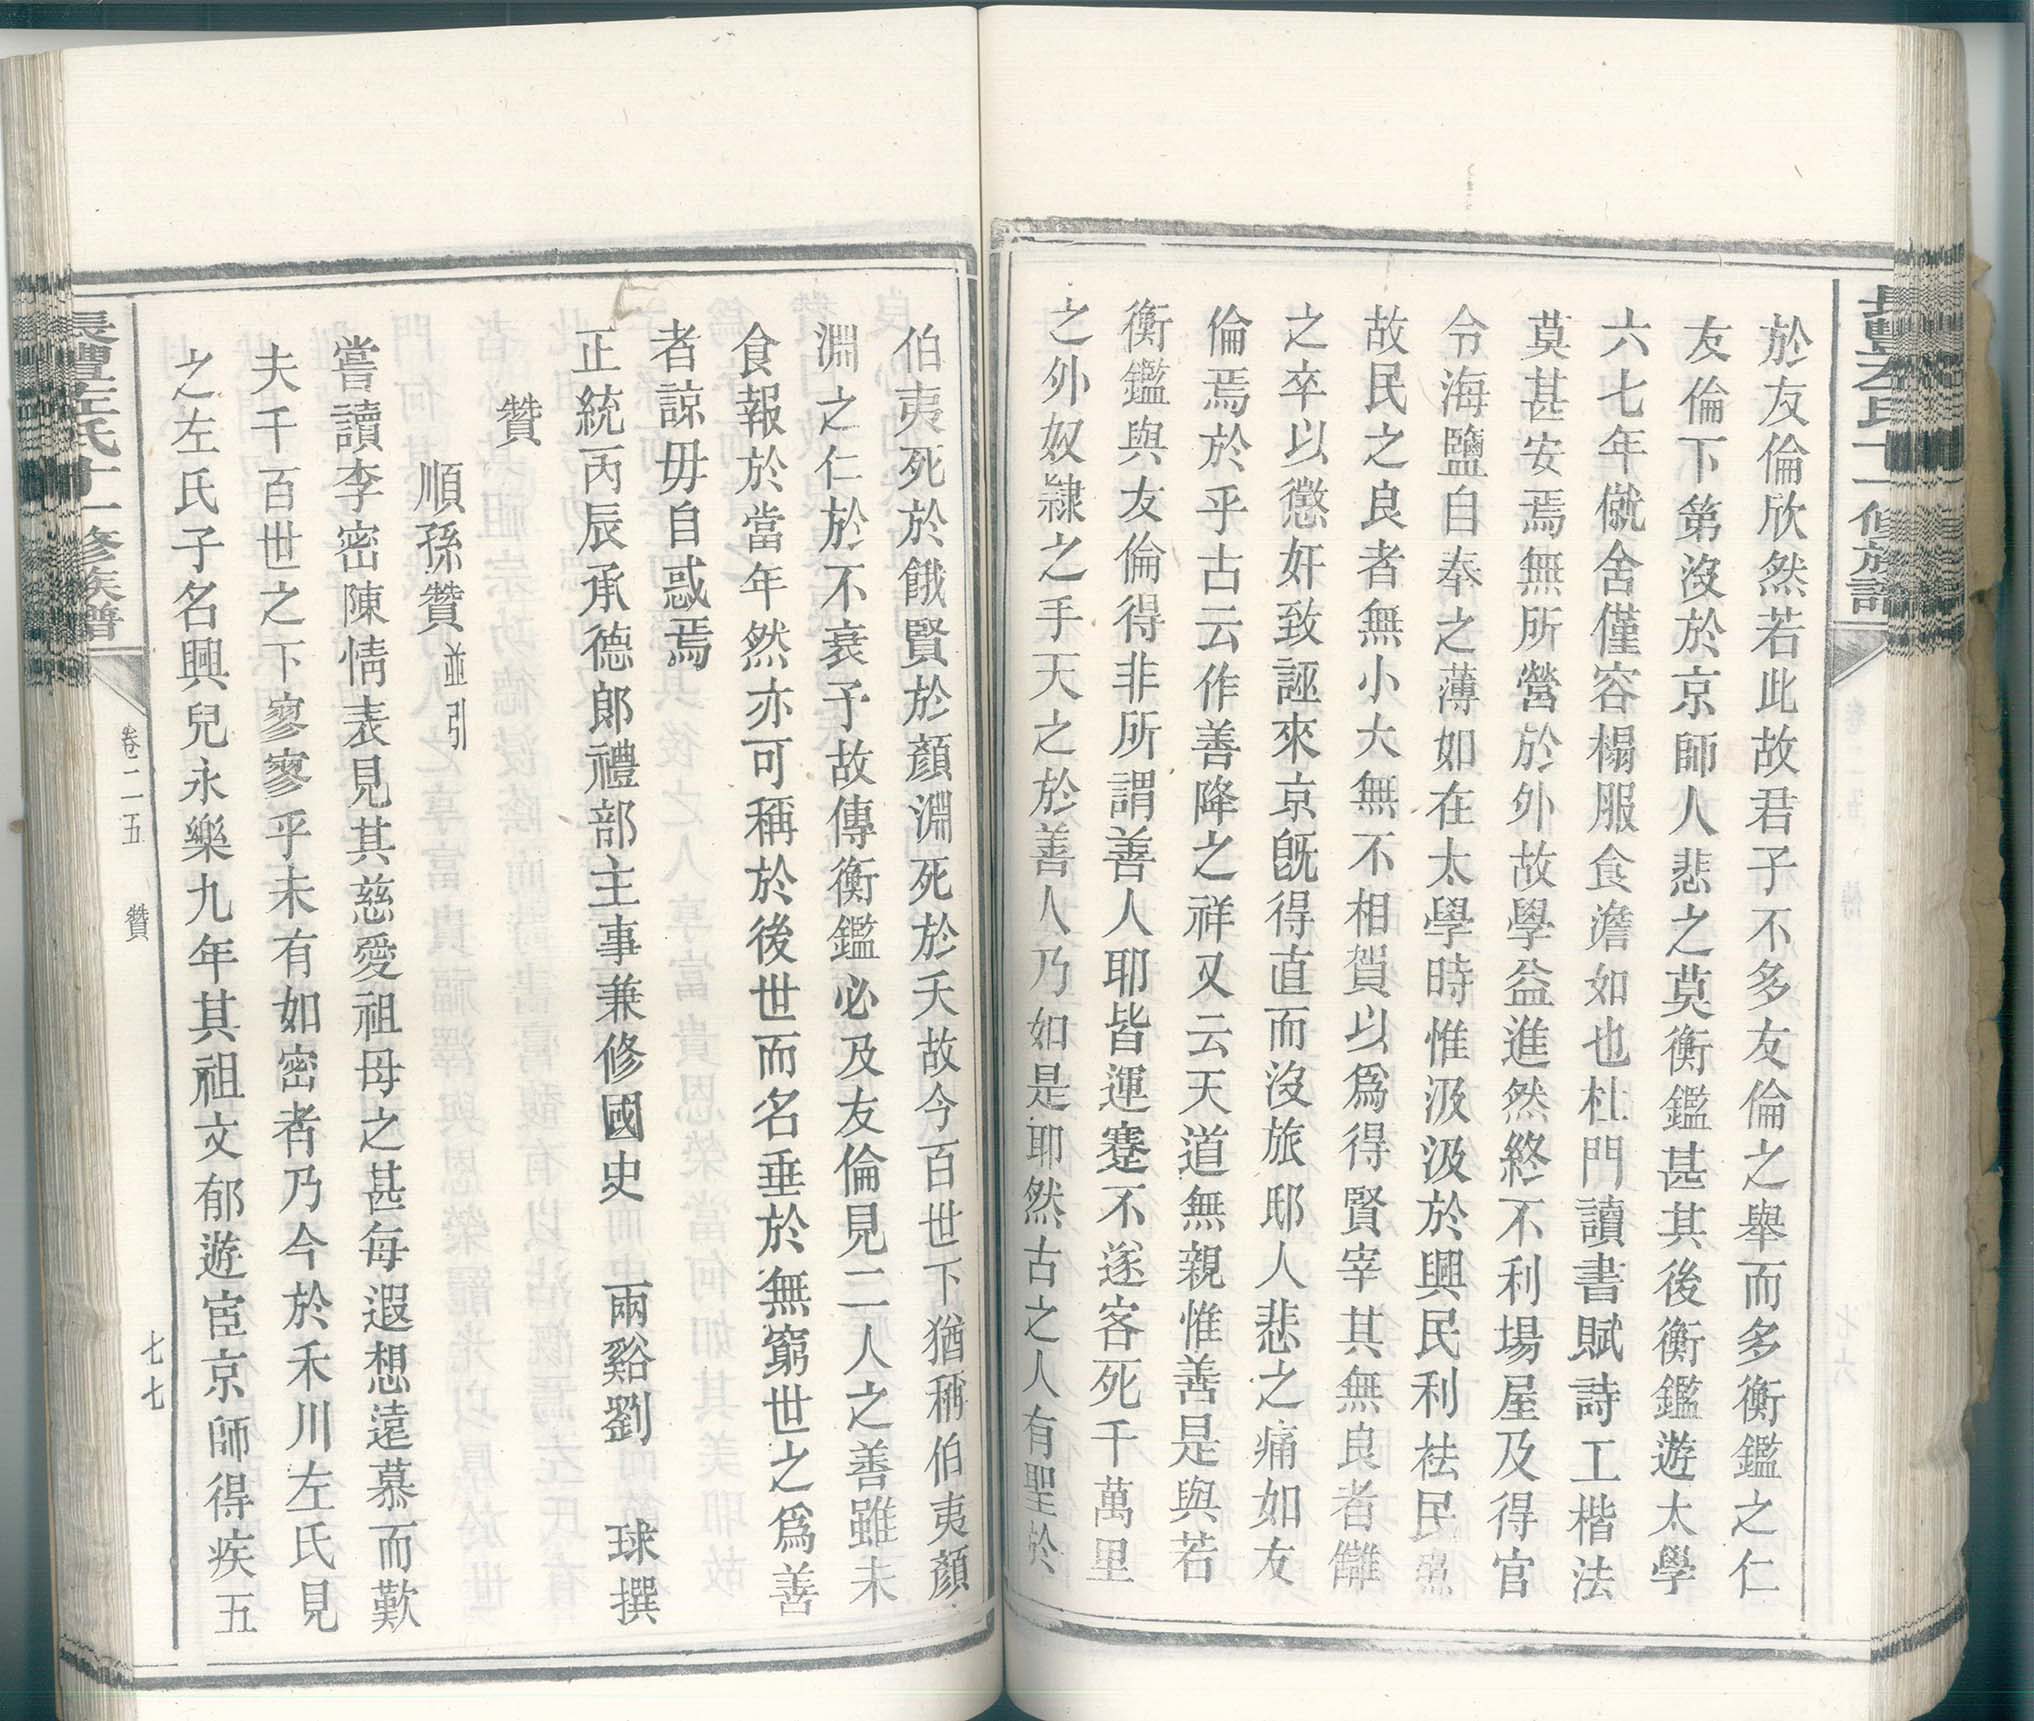 於友倫欣然若此故君子不多友倫之舉而多衡鑑之仁
友倫下第沒於京師人悲之莫衡鑑甚其後衡鑑遊太學
六七年僦舍僅容榻服食澹如也杜門讀書賦詩工楷法
莫甚安焉無所營於外故學益進然終不利場屋及得官
令海鹽自奉之薄如在太學時惟汲汲於興民利袪民
故民之良者無小大無不相賀以爲得賢宰其無良者讎
之卒以懲奸致誣來京旣得直而沒旅邸人悲之痛如友
倫焉於乎古云作善降之祥又云天道無親惟善是與若
衡鑑與友倫得非所謂善人耶皆運蹇不遂客死千萬里
之外奴隸之手天之於善人乃如是耶然古之人有聖於
伯夷死於餓賢於顏淵死於夭故今百世下猶稱伯夷顏
淵之仁於不衰予故傳衡鑑必及友倫見二人之善雖未
食報於當年然亦可稱於後世而名垂於無窮世之爲善
者諒毋自惑焉
正統丙辰承德郞禮部主事兼修國史 兩谿劉 球撰
贊
順孫贊並引
嘗讀李密陳情表見其慈愛祖母之甚每遐想遠慕而歎
夫千百世之下寥寥乎未有如密者乃今於禾川左氏見
之左氏子名興兒永樂九年其祖文郁遊宦京師得疾五
左氏十一修族譜
卷二五 贊
七七